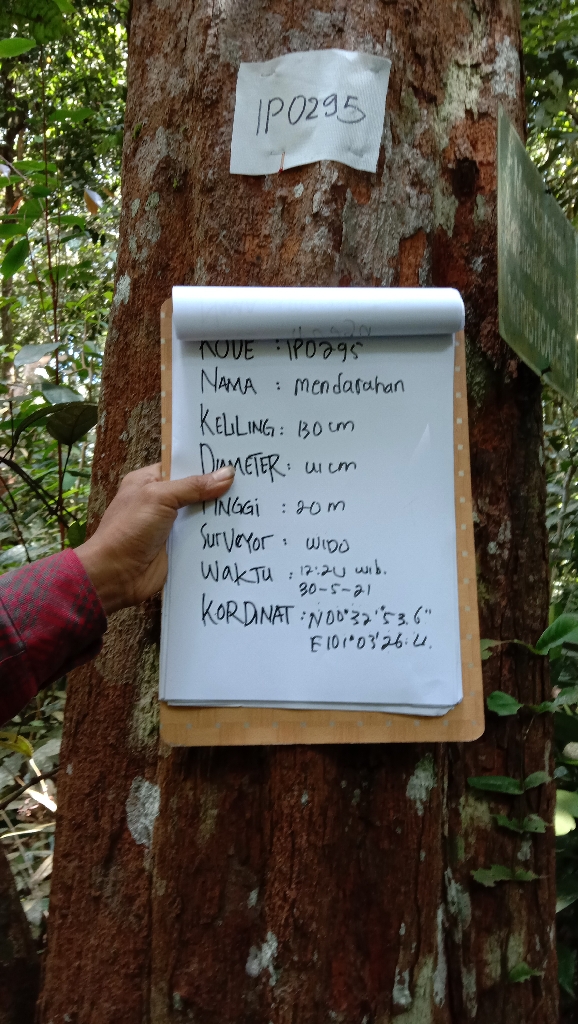 IP0295
KODE : IP0295
NAMA : mendarahan
KELILING : 130 cm
DIAMETER : 41 cm
TINGGI : 20 m
Surveyor : WIDO
WAKTU : 12:24 wib.
30-5-21
KORDINAT : N00°32'53.6"
E101°03'26.4.